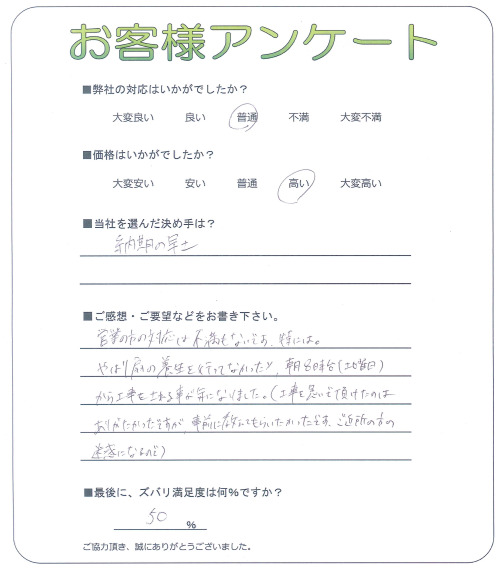 お客様アンケート
■弊社の対応はいかがでしたか？
大変良い 良い 普通 不満 大変不満
■価格はいかがでしたか？
大変安い 安い 普通 高い 大変高い
■当社を選んだ決め手は？
納期の早さ
■ご感想・ご要望などをお書き下さい。
営業の方の対応は不満もないです、特には。
やはり扉の養生を行ってなかったり、朝8時台(土曜日)
から工事をされる事が気になりました。(工事を急いで頂けたのは
ありがたかったですが、事前に教えてもらいたかったです、ご近所の方の
迷惑になるので)
■最後に、ズバリ満足度は何%ですか？
50 %
ご協力頂き、誠にありがとうございました。